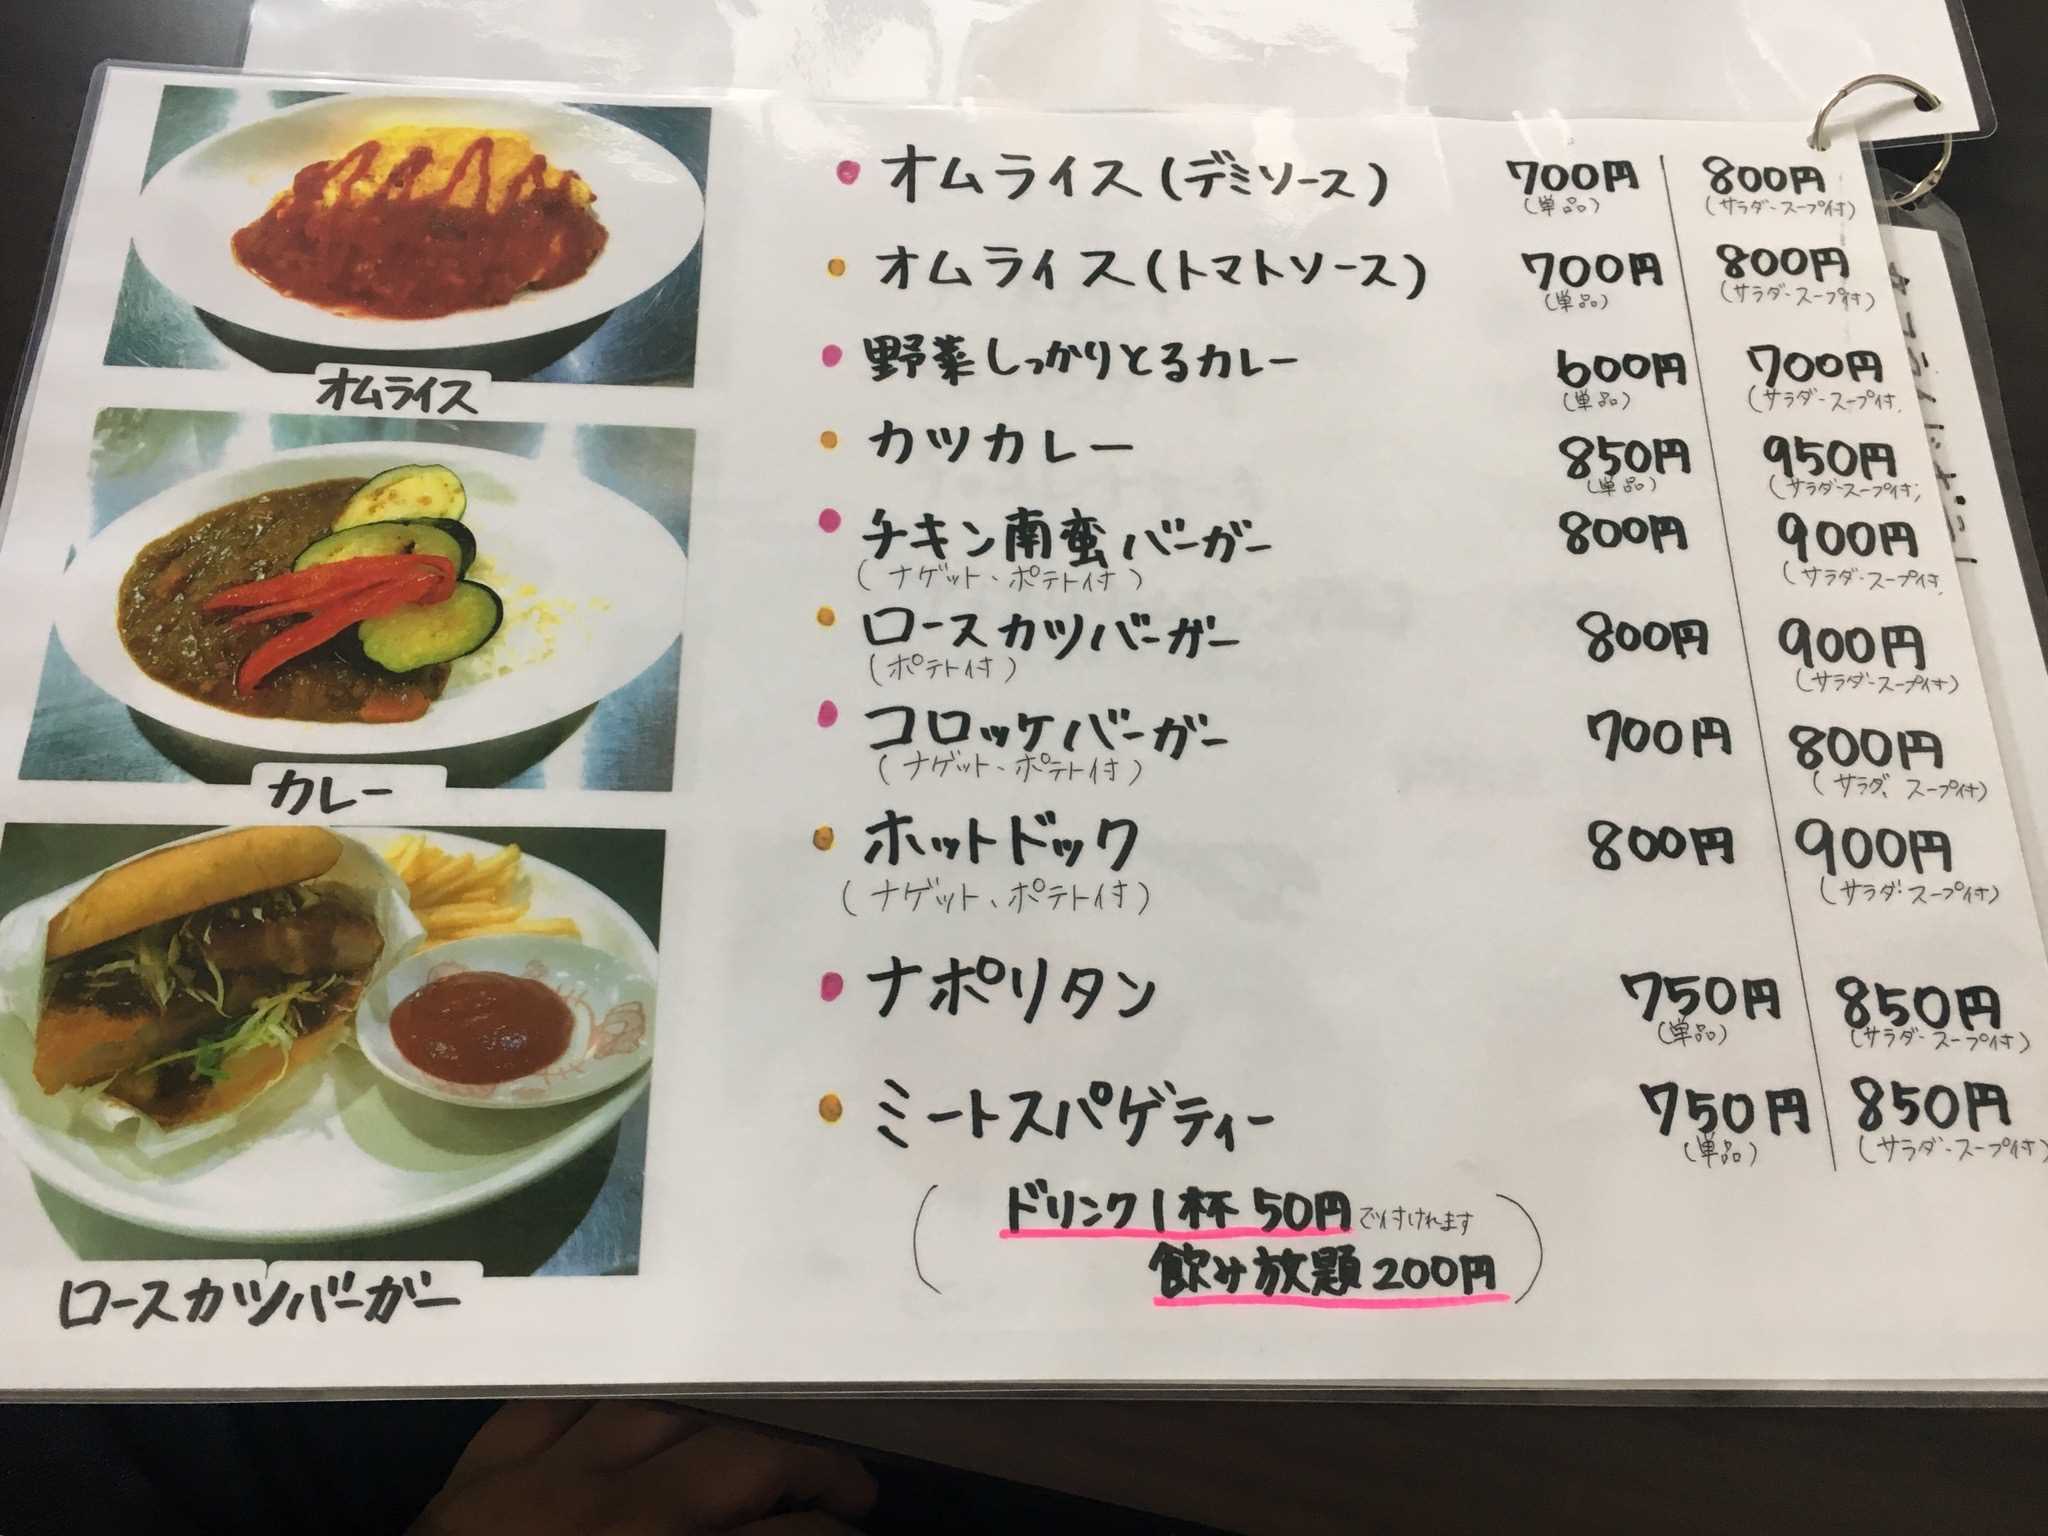 オムライス
カレー
ロースカツバーガー
オムライス(デミソース) 700円 800円
(単品) (サラダ・スープ付)
オムライス(トマトソース) 700円 800円
(単品) (サラダ・スープ付)
野菜しっかりとるカレー 600円 700円
(単品) (サラダ・スープ付
カツカレー 850円 950円
(単品) (サラダ・スープ付)
チキン南蛮バーガー 800円 900円
(ナゲット、ポテト付) (サラダ・スープ付
ロースカツバーガー 800円 900円
(ポテト付) (サラダ・スープ付)
コロッケバーガー 700円 800円
(ナゲット、ポテト付) (サラダ、スープ付)
ホットドック 800円 900円
(ナゲット、ポテト付) (サラダ・スープ付)
ナポリタン 750円 850円
(単品) (サラダ・スープ付)
ミートスパゲティー 750円 850円
(単品) (サラダ・スープ付)
ドリンク1杯50円で付けれます
飲み放題200円